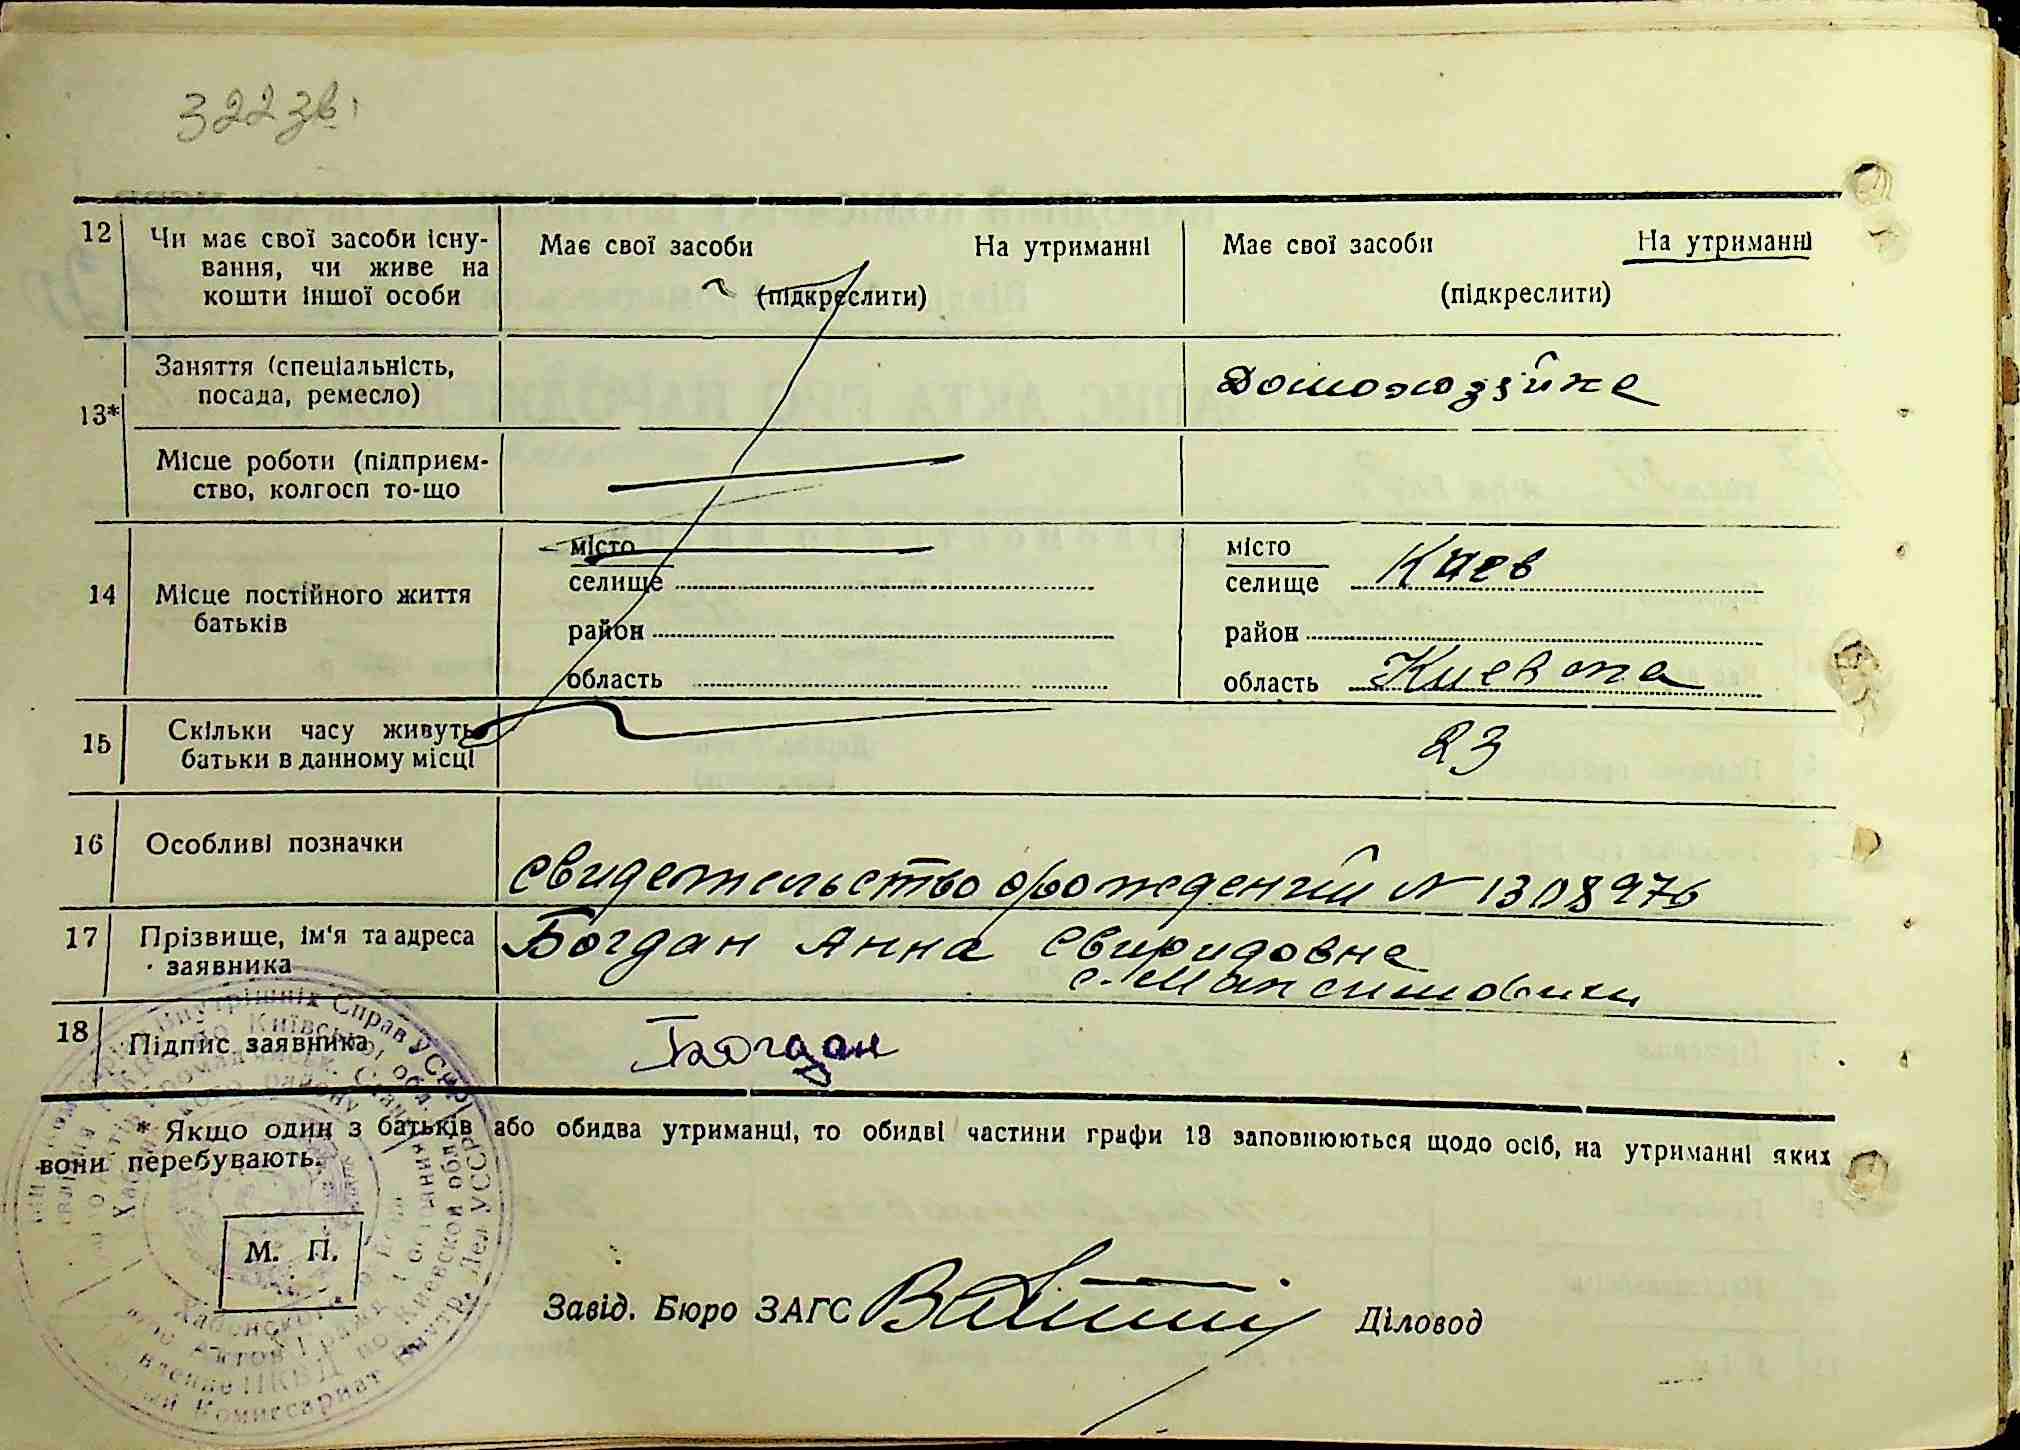 322 зв.
12 Чи має свої засоби існу-
вання, чи живе на
кошти іншої особи
Має свої засоби На утриманні
(підкреслити)
Має свої засоби На утриманні
(підкреслити)
13*
Заняття (спеціальність,
посада, ремесло)
Домохозяйка
Місце роботи (підприєм-
ство, колгосп то-що
14 Місце постійного життя
батьків
місто
селище
район
область
місто
селище Киев
район
область Киевска
15 Скільки часу живуть
батьки в данному місці
23
16 Особливі позначки
свидетельство о рождений N 1308976
17 Прізвище, ім'я та адреса
заявника
Богдан Анна Свиридовна
с. Максимовичи
18 Підпис заявника
Богдан
* Якщо один з батьків або обидва утриманці, то обидві частини графи 13 заповнюються щодо осіб, на утриманні яких
вони перебувають.
М. П.
Завід. Бюро ЗАГС
Діловод